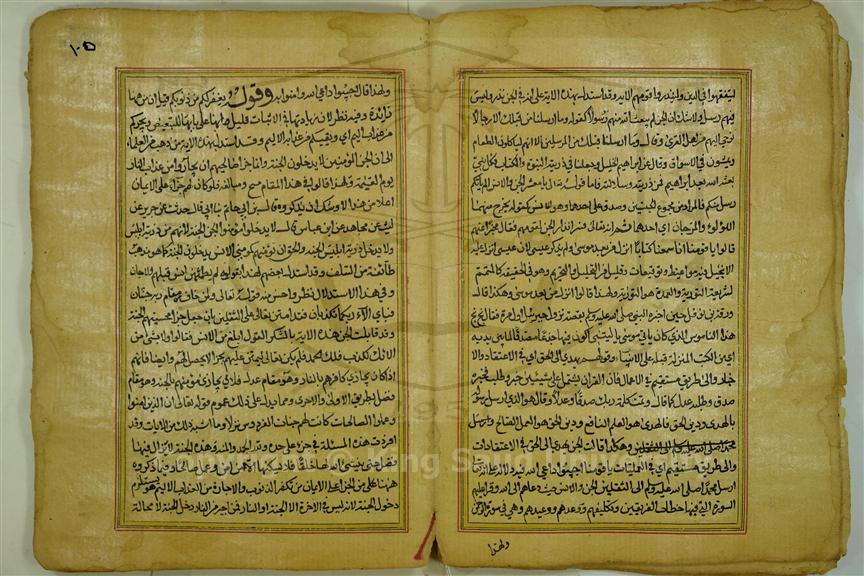 ليتفقهوا في الدين ولينذروا قومهم الآية وقد استدل بهذه الآية على انه في الجن نذر وليس
فيهم رسل ولا شك ان الجن لم يبعث الله منهم رسولا لقوله وما ارسلنا من قبلك الا رجالا
نوحي اليهم من اهل القرى وقال وما ارسلنا قبلك من المرسلين الا انهم ليأكلون الطعام
ويمشون في الاسواق وقال عن ابراهيم الخليل وجعلنا في ذريته النبوة والكتاب فكل نبي
بعثه الله بعد ابراهيم فمن ذريته وسلالته فاما قوله تعالى يا معشر الجن والانس الم يأتكم
رسل منكم فالمراد من مجموع الجنسين وصدق على احدهما وهو الانس كقوله يخرج منهما
اللؤلؤ والمرجان اي احدهما ثم انه تعالى فسر انذار الجن لقومهم فقال مخبرا عنهم
قالوا يا قومنا انا سمعنا كتابا انزل من بعد موسى ولم يذكر عيسى لان عيسى انزل عليه
الانجيل فيه مواعظ وترقيقات وقليل من التحليل والتحريم وهو في الحقيقة كالمتمم
لشريعة التورية والعمدة هو التورية ولهذا قالوا انزل من بعد موسى وهكذا قال
ورقة بن نوفل حين اخبره النبي صلى الله عليه وسلم بقصة نزول جبريل اول مرة فقال بخ بخ
هذا الناموس الذي كان يأتي موسى يا ليتني اكون فيها جذعا مصدقا لما بين يديه
اي من الكتب المنزلة قبله على الانبياء وقولهم يهدي الى الحق اي في الاعتقاد والا
خبار والى طريق مستقيم في الاعمال فان القران يشتمل على شيئين خبر وطلب فخبره
صدق وطلبه عدل كما قال وتمت كلمة ربك صدقا وعدلا وقال هو الذي ارسل رسوله
بالهدى ودين الحق فالهدى هو العلم النافع ودين الحق هو العمل الصالح
وهكذا قالت الجن يهدي الى الحق في الاعتقادات
والى طريق مستقيم اي في العمليات يا قومنا اجيبوا داعي الله فيه دلالة على انه تعالى
ارسل محمدا صلى الله عليه وسلم الى الثقلين الجن والانس حيث دعاهم الى الله وقرأ عليهم
السورة التي فيها خطاب الفريقين وتكليفهم ووعدهم ووعيدهم وهي في سورة الرحمن
ولهذا
١٠٥
ولهذا قال اجيبوا داعي الله وامنوا به وقوله ويغفر لكم من ذنوبكم قيل ان من ها هنا
زايدة وفيه نظر لان زيادتها في الاثبات قليل وقيل انها على بابها للتبعيض ويجركم
من عذاب اليم اي ويقيكم من عذابه الاليم وقد استدل بهذه الاية من ذهب من العلماء
الى ان الجن المؤمنين لا يدخلون الجنة وانما جزاء صالحيهم ان يجاروا من عذاب النار
يوم القيمة ولهذا قالوا في هذا المقام وهو مقام تبجح ومبالغة فلو كان لهم جزاء على الايمان
اعلا من هذا لاوشك ان يذكروه وقال ابن ابي حاتم ثنا ابي قال حدثت عن جرير عن
ليث عن مجاهد عن ابن عباس قال لا يدخل مؤمنوا الجن الجنة لانهم من ذرية ابليس
ولا يدخل ذرية ابليس الجنة والحق ان مؤمنهم كمؤمني الانس يدخلون الجنة كما هو مذهب
طائفة من السلف وقد استدل بعضهم لهذا بقوله لم يطمثهن انس قبلهم ولا جان
وفي هذا الاستدلال نظر واحسن منه قوله تعالى ولمن خاف مقام ربه جنتان
فبأي الاء ربكما تكذبان فقد امتن تعالى على الثقلين بان جعل جزاء محسنهم الجنة
وقد قابلت الجن هذه الاية بالشكر القولي ابلغ من الانس فقالوا ولا بشيء من
الائك ربنا نكذب فلك الحمد فلم يكن تعالى ليمتن عليهم بجزاء لا يحصل لهم وايضا فانه
اذا كان يجازي كافرهم بالنار وهو مقام عدل فلان يجازي مؤمنهم بالجنة وهو مقام
فضل بطريق الاولى والاحرى ومما يدل على ذلك عموم قوله تعالى ان الذين امنوا
وعملوا الصالحات كانت لهم جنات الفردوس نزلا وما اشبه ذلك من الايات وقد
افردت هذه المسئلة في جزء على حدة ولله الحمد والمنة وهذه الجنة لا يزال فيها
فضل حتى ينشئ الله لها خلقا افلا يسكنها من امن به وعمل صالحا وما ذكروه
ههنا من الجزاء على الايمان من تكفير الذنوب والاجارة من العذاب الاليم هو يستلزم
دخول الجنة لانه ليس في الاخرة الا الجنة او النار فمن اجير من النار دخل الجنة لا محالة